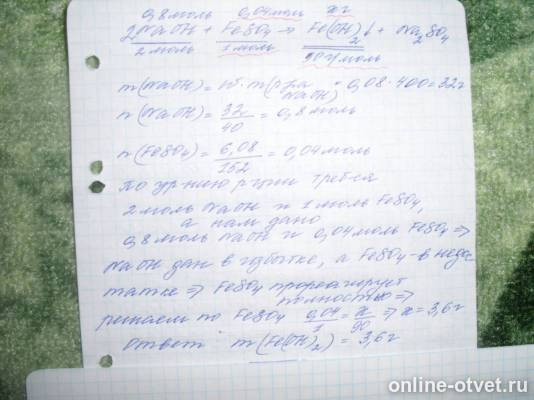 0,8 моль 0,04 моль x г
2NaOH + FeSO4 → Fe(OH)2↓ + Na2SO4
2 моль 1 моль 90 г/моль
m(NaOH) = w · m(р-ра NaOH) = 0,08 · 400 = 32 г
n(NaOH) = 32/40 = 0,8 моль
n(FeSO4) = 6,08/152 = 0,04 моль
по ур-нию р-ции треб-ся
2 моль NaOH и 1 моль FeSO4,
а нам дано
0,8 моль NaOH и 0,04 моль FeSO4 ⇒
NaOH дан в избытке, а FeSO4 - в недос
татке ⇒ FeSO4 прореагирует
полностью ⇒
решаем по FeSO4 0,04/1 = x/90 ⇒ x = 3,6 г
Ответ: m(Fe(OH)2) = 3,6 г
online-otvet.ru